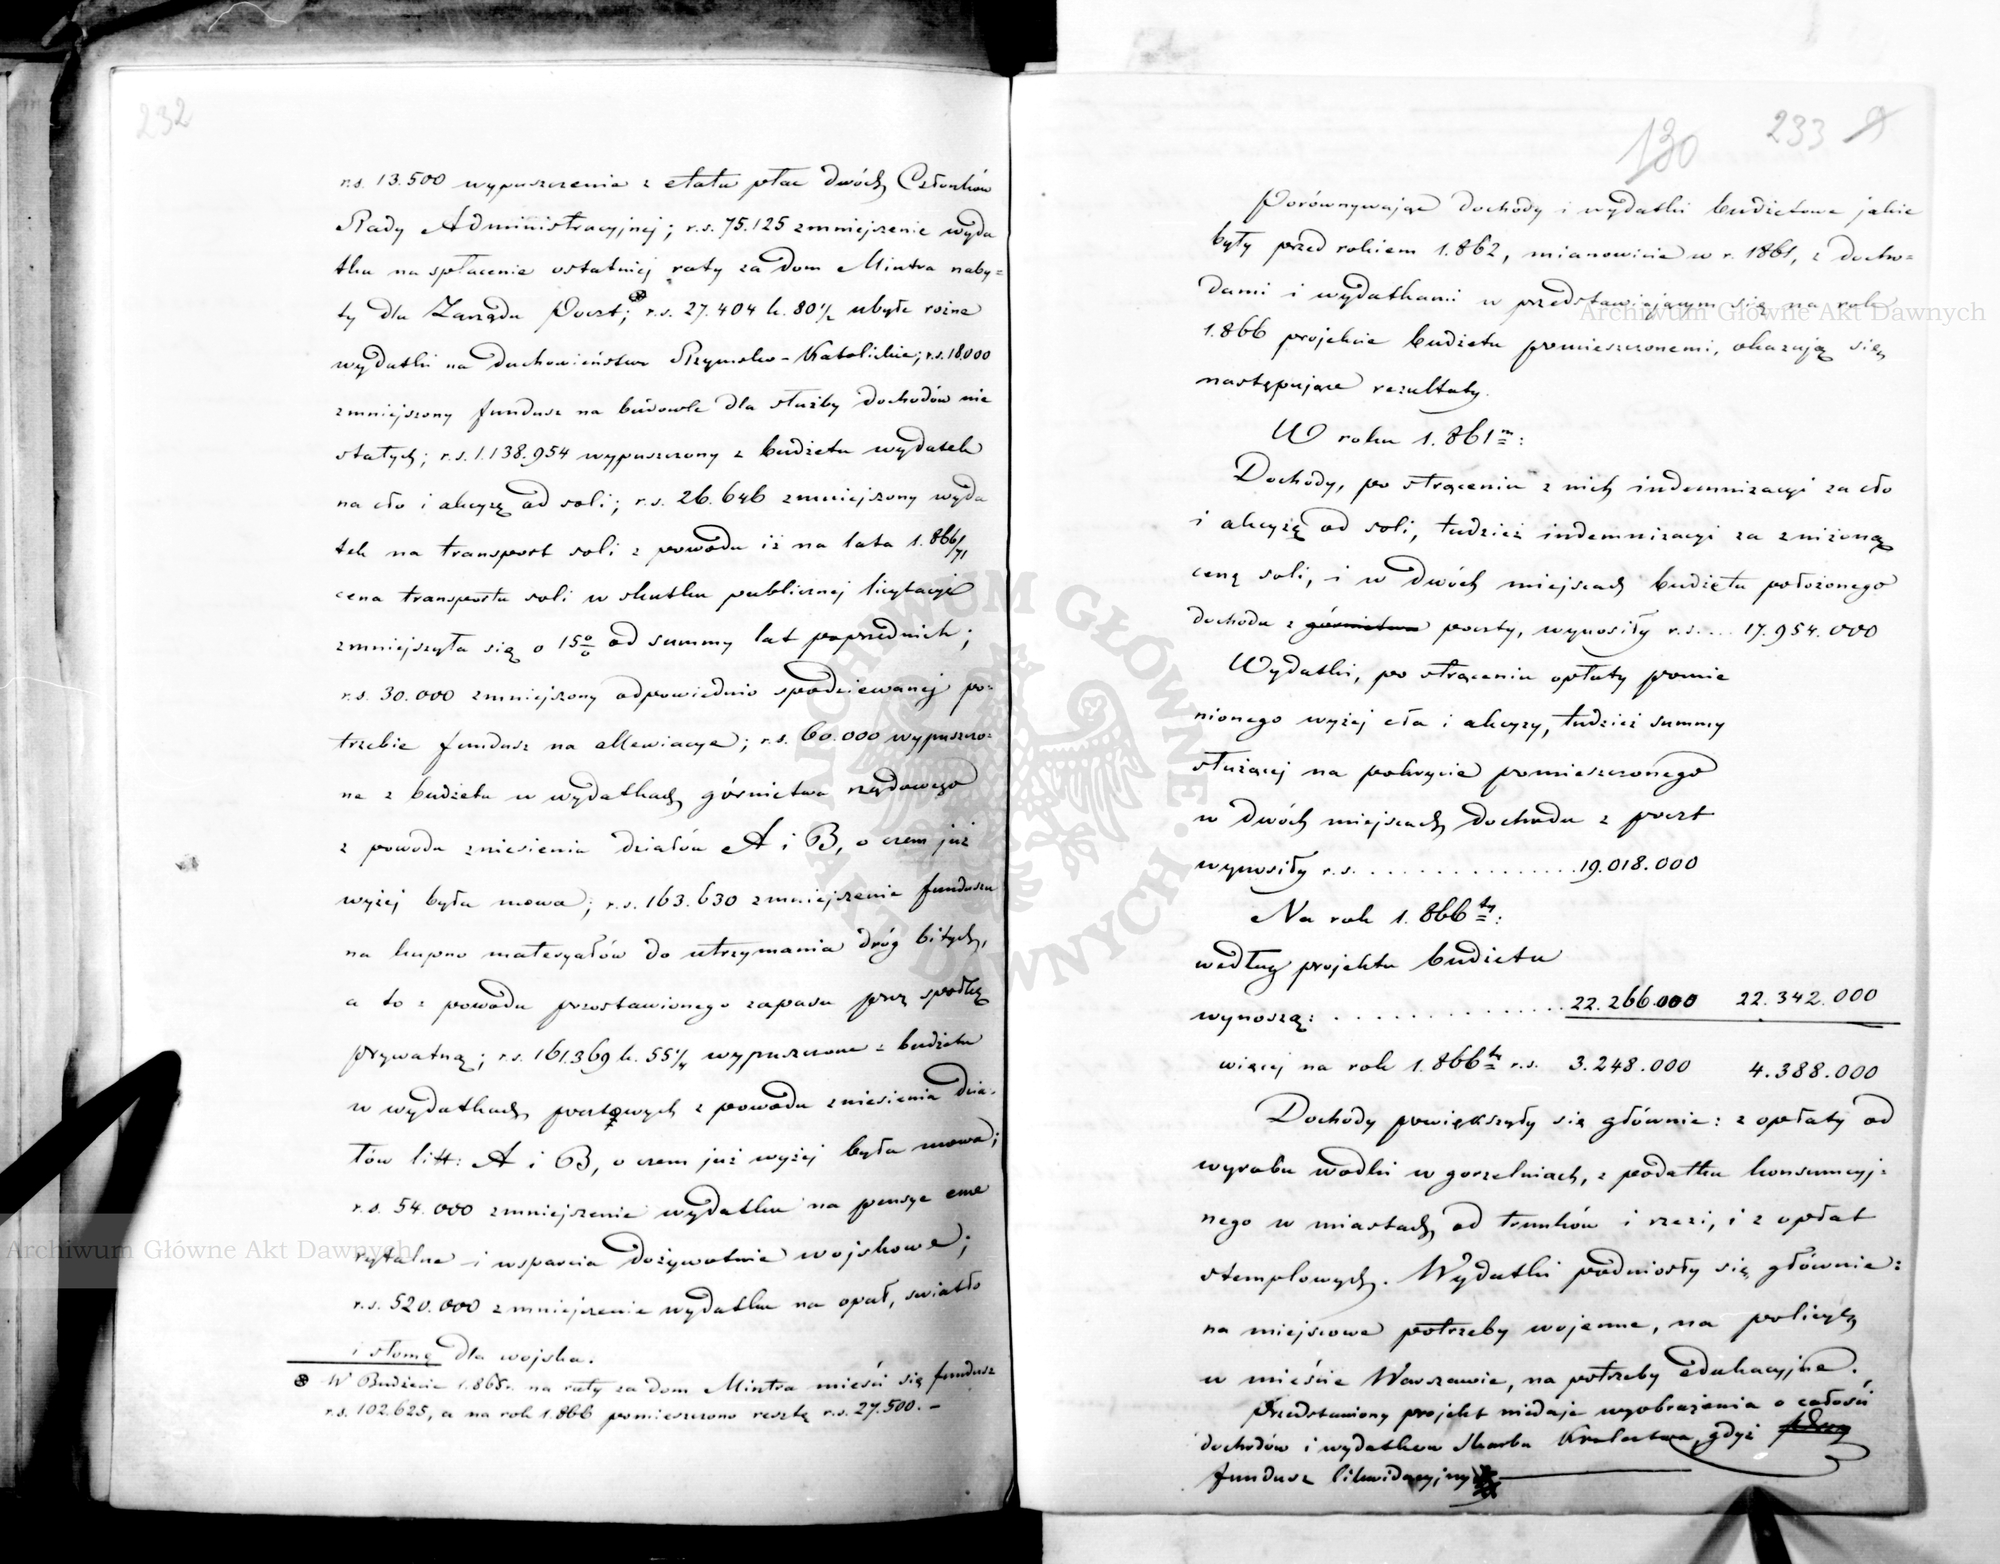 232
r.s. 13.500 wypuszczenie z etatu płac dwóch Członków
Rady Administracyjnej; r.s. 75.125 zmniejszenie wyda
tku na spłacenie ostatniej raty za dom Mintra naby=
ty dla Zarządu Poczt; ⊗ r.s. 27.404 k. 80½ ubyłe rożne
wydatki na duchowieństwo Rzymsko-Katolickie; r.s. 18.000
zmniejszony fundusz na budowle dla służby dochodów nie
stałych; r.s. 1.138.954 wypuszczony z budżetu wydatek
na cło i akcyzę od soli; r.s. 26.646 zmniejszony wyda
tek na transport soli z powodu iż na lata 1.866/71
cena transportu soli w skutku publicznej licytacyi
zmniejszyła się o 15% od summy lat poprzednich;
r.s. 30.000 zmniejszony odpowiednio spodziewanej po=
trzebie fundusz na allewiacye; r.s. 60.000 wypuszczo=
ne z budżetu w wydatkach górnictwa rządowego
z powodu zniesienia działów A i B, o czem już
wyżej była mowa; r.s. 163.630 zmniejszenie funduszu
na kupno materyałów do utrzymania dróg bitych,
a to z powodu pozostawionego zapasu przez spółkę
prywatną; r.s. 161.369 k. 55¼ wypuszczone z budżetu
w wydatkach pocztowych z powodu zniesienia dzia=
łów litt: A i B, o czem już wyżej była mowa;
r.s. 54.000 zmniejszenie wydatku na pensye eme
rytalne i wsparcia dożywotnie wojskowe;
r.s. 520.000 zmniejszenie wydatku na opał, swiatło
i słomę dla wojska.
⊗ W Budżecie 1.865r. na raty za dom Mintra mieści się fundusz
r.s. 102.625, a na rok 1.866 pomieszczono resztę r.s. 27.500.-
130 233
Porównywając dochody i wydatki budżetowe jakie
były przed rokiem 1.862, mianowicie w r. 1861, z docho=
dami i wydatkami w przedstawiającym się na rok
1.866 projekcie budżetu pomieszczonemi, okazują się
następujące rezultaty.
W roku 1.861m:
Dochody, po strąceniu z nich indemnizacyi za cło
i akcyzę od soli, tudzież indemnizacyi za zniżoną
cenę soli, i w dwóch miejscach budżetu położonego
dochodu z górnictwa poczty, wynosiły r.s.... 17.954.000
Wydatki, po strąceniu opłaty pomie
nionego wyżej cła i akcyzy, tudzież summy
służącej na pokrycie pomieszczonego
w dwóch miejscach dochodu z poczt
wynosiły r.s. . . . . . . . . . . . . . . . 19.018.000
Na rok 1.866ty:
według projektu budżetu
wynoszą: . . . . . . . . . . . . . . 22.266.000 22.342.000
więcej na rok 1.866ty r.s. 3.248.000 4.388.000
Dochody powiększyły się głównie: z opłaty od
wyrobu wódki w gorzelniach, z podatku konsumcyj=
nego w miastach od trunków i rzezi, i z opłat
stemplowych. Wydatki podniosły się głównie:
na miejscowe potrzeby wojenne, na policyę
w mieście Warszawie, na potrzeby edukacyjne.
Przedstawiony projekt niedaje wyobrażenia o całości
dochodów i wydatków Skarbu Królestwa, gdyż
fundusz likwidacyjny
Archiwum Główne Akt Dawnych
Archiwum Główne Akt Dawnych
ARCHIWUM GŁÓWNE AKT DAWNYCH